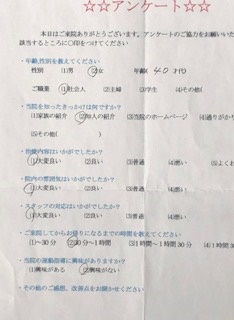 ☆☆アンケート☆☆
本日はご来院ありがとうございます。アンケートのご協力をお願いいた
該当するところに○印をつけてください
・年齢,性別を教えてください
性別 (1)男 (2)女 年齢( 40 才代)
ご職業 (1)社会人 (2)主婦 (3)学生 (4)その他(
・当院を知ったきっかけは何ですか?
(1)家族の紹介 (2)知人の紹介 (3)当院のホームページ (4)通りがか
(5)その他( )
・治療内容はいかがでしたか?
(1)大変良い (2)良い (3)普通 (4)悪い (5)よくわ
・院内の雰囲気はいかがでしたか?
(1)大変良い (2)良い (3)普通 (4)悪い
・スタッフの対応はいかがでしたか?
(1)大変良い (2)良い (3)普通 (4)悪い
・ご来院してからお帰りになるまでの時間を教えてください
(1)~30分 (2)30分~1時間 (3)1時間~1時間30分 (4)1時間3
・当院の運動指導に興味がありますか?
(1)興味がある (2)興味がない
・その他のご感想、改善点をお聞かせください